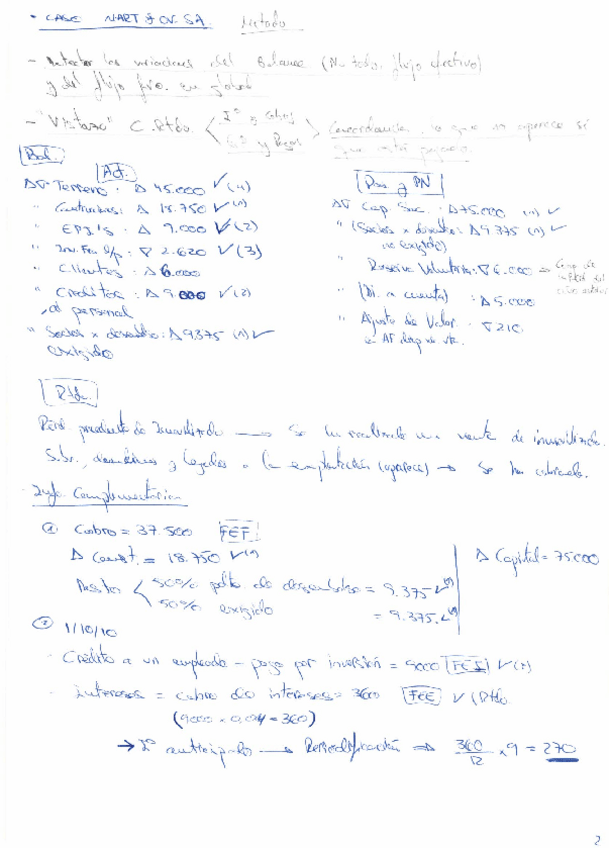 - CASE NART & OV. S.A. Método
- Detectar las variaciones del Balance (Método. flujo efectivo)
y del flujo fro. en global
- "Vistazo" C. Rtdo. Iº y Gtos
Cº y Pagos Concordancia lo que no aparece si
que está
Bal.
Act.
Terreno: Δ 45.000 ✓(1)
" Construcciones: Δ 18.750 ✓(1)
" Δ 9.000 ✓(2)
" Inv. Fra l/p: ∇ 2.620 ✓(3)
" Clientes: Δ 6.000
" Créditos: Δ 9.000 ✓(2)
al personal
" Socios x desembo: Δ 9.375 (1) ✓
exigido
Pas. y PN
Cap. Soc.: Δ 75.000 (1) ✓
" (Socios x desembo: Δ 9.375 (1) ✓
no exigido)
" Reserva Voluntaria: ∇ 6.000
" (Di. a cuenta) Δ 5.000
" Ajuste de Valor ∇ 210
en AF disp. vta.
Rtdo.
Pérd. procedente de Inmovilizado → Se ha realizado una venta de inmovilizado.
Sub., donaciones y legados a la explotación (aparece) → Se ha cobrado.
Info Complementaria
① Cobro = 37.500 FEF
Δ Const. = 18.750 ✓(1)
Resto 50% pdte. de desembolso = 9.375 ✓(1)
50% exigido = 9.375 ✓(1)
Δ Capital = 75000
② 1/10/10
- Crédito a un empleado - pago por inversión = 9000 FEI ✓(2)
- Intereses = cobro de intereses = 360 FEE ✓ (Rtdo
(9000 x 0,04 = 360)
→ Iº anticipado → Periodificación ⇒ Δ 360/12 x 9 = 270
2